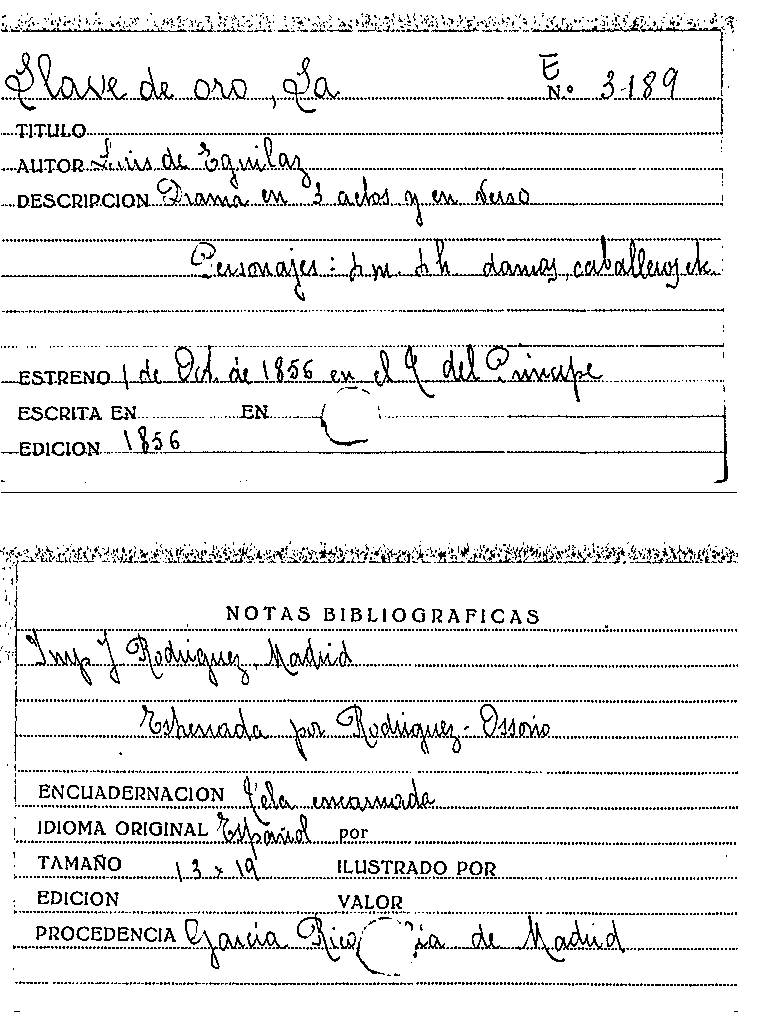 Llave de oro, La
E
N.º 3-189
TITULO
AUTOR Luis de Eguilaz
DESCRIPCION Drama en 3 actos y en verso
Personajes: 4 m. 4 h. damas, caballeros, etc.
ESTRENO 1 de Oct. de 1856 en el T. del Principe
ESCRITA EN EN
EDICION 1856
NOTAS BIBLIOGRAFICAS
Imp J Rodriguez, Madrid
Estrenada por Rodriguez-Ossorio
ENCUADERNACION Tela encarnada
IDIOMA ORIGINAL Español por
TAMAÑO 13 x 19 ILUSTRADO POR
EDICION VALOR
PROCEDENCIA Garcia Rico de Madrid